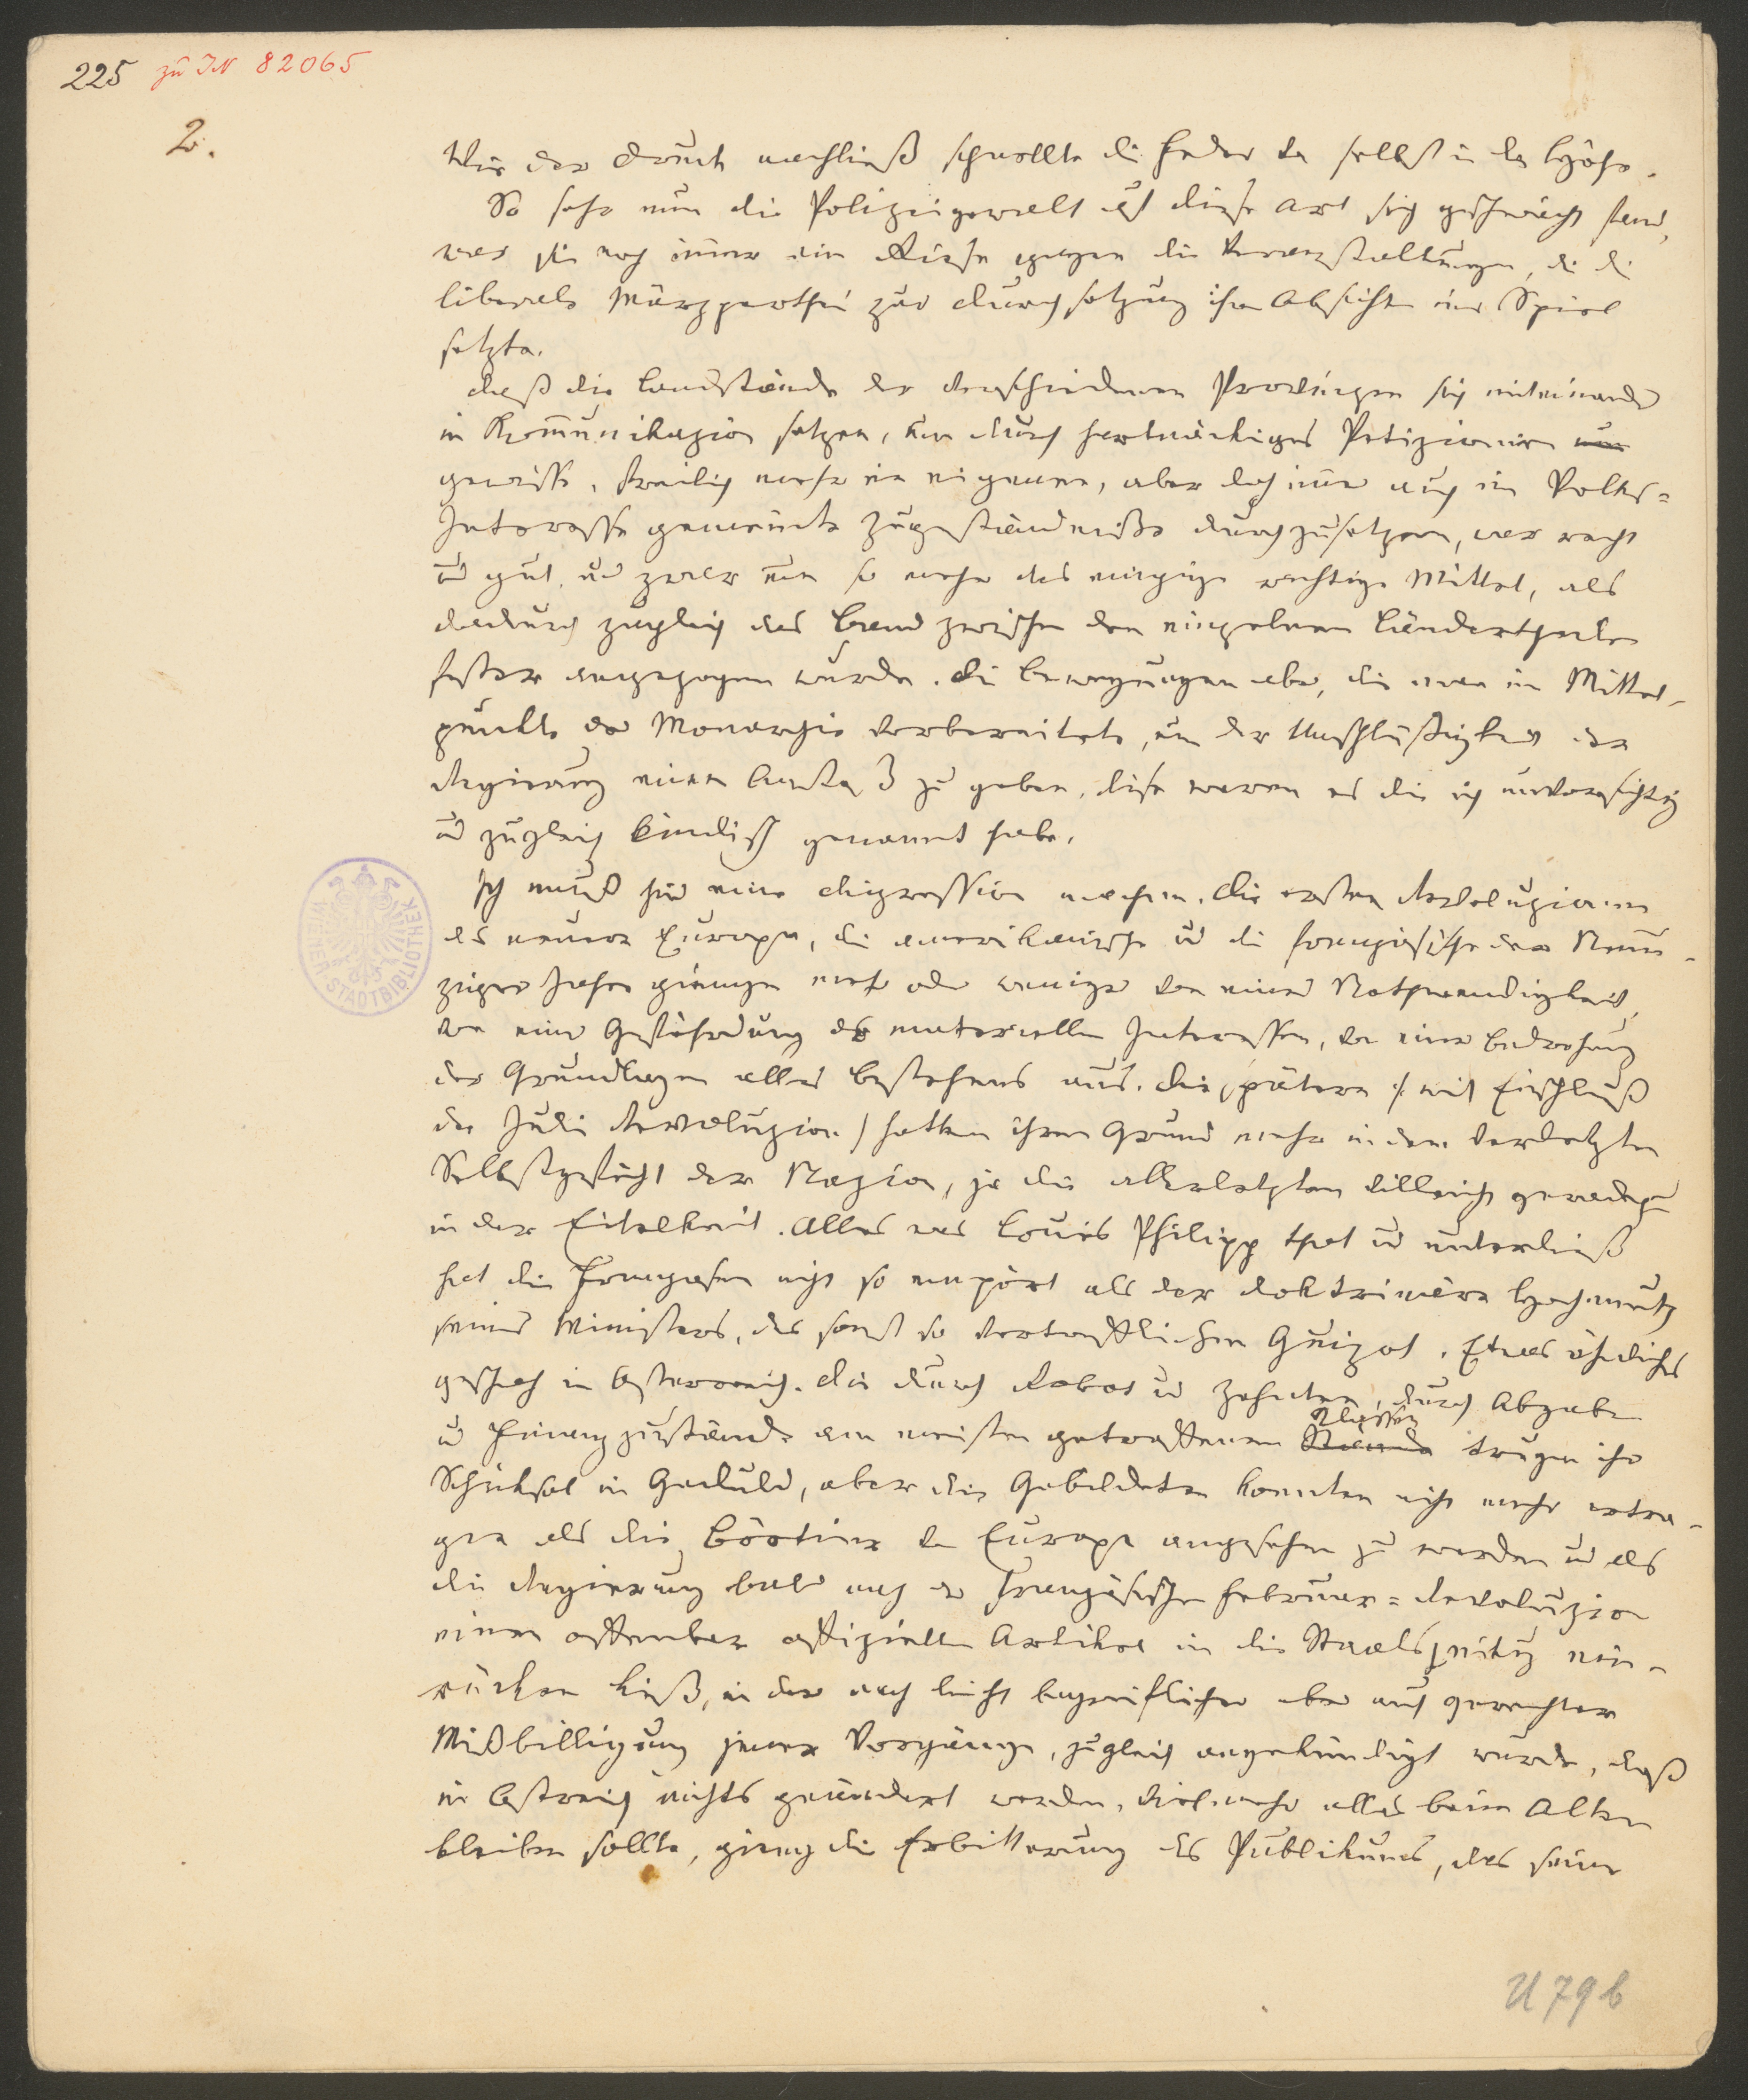 225 zu IN 82065
2.
Wie der Druck nachließ schnellte die Feder von selbst in die Höhe.
So sehr nun die Polizeigewalt auf diese Art sich geschwächt fand,
war sie noch immer ein Riese gegen die Veranstaltungen, die die
liberale Märzparthei zur Durchsetzung ihrer Absichten ins Spiel
setzte.
Daß die Landstände der verschiedenen Provinzen sich miteinander
in Kommunikazion setzen, um durch hartnäckiges Petizioniren um
gewisse, freilich mehr im eigenen, aber doch immer auch im Volks=
Interesse gemeinte Zugeständnisse durchzusetzen, war recht
und gut, und zwar um so mehr das einzige richtige Mittel, als
dadurch zugleich das Band zwischen den einzelnen Ländertheilen
fester angezogen wurde. Die Bewegungen aber, die man im Mittel-
punkte der Monarchie vorbereitete, um der Unschlüßigkeit der
Regierung einen Anstoß zu geben, diese waren es die ich unvorsichtig
und zugleich kindisch genannt habe.
Ich muß hier eine Digression machen. Die ersten Revoluzionen
des neuern Europa, die amerikanische und die französische der Neun-
ziger Jahre giengen mehr oder weniger von einer Nothwendigkeit,
von einer Gefährdung der materiellen Interessen, von einer Bedrohung
der Grundlagen alles Bestehens aus. Die spätern (: mit Einschluß
der Juli Revoluzion) hatten ihren Grund mehr in dem verletzten
Selbstgefühl der Nazion, ja die allerletzten vielleicht geradezu
in der Eitelkeit. Alles was Louis Philipp that und unterließ
hat die Franzosen nicht so empört als der doktrinäre Hochmuth
seines Ministers, des sonst so vortrefflichen Guizot. Etwas ähnliches
geschah in Österreich. Die durch Robot und Zehnten, durch Abgaben
und Finanzzustände am meisten getroffenen Stände Klassen trugen ihr
Schicksal in Geduld, aber die Gebildeten konnten nicht mehr ertra-
gen als die Böotier von Europa angesehen zu werden und als
die Regierung bald nach der französischen Februar=Revoluzion
einen offenbar offiziellen Artikel in die Staatszeitung ein-
rücken ließ, in der nach leicht begreiflicher aber auch gerechter
Mißbilligung jener Vorgänge, zugleich angekündigt wurde, daß
in Östreich nichts geändert werden, vielmehr alles beim Alten
bleiben sollte, gieng die Erbitterung des Publikums, das seine
WIENER STADTBIBLIOTHEK
U 79 b